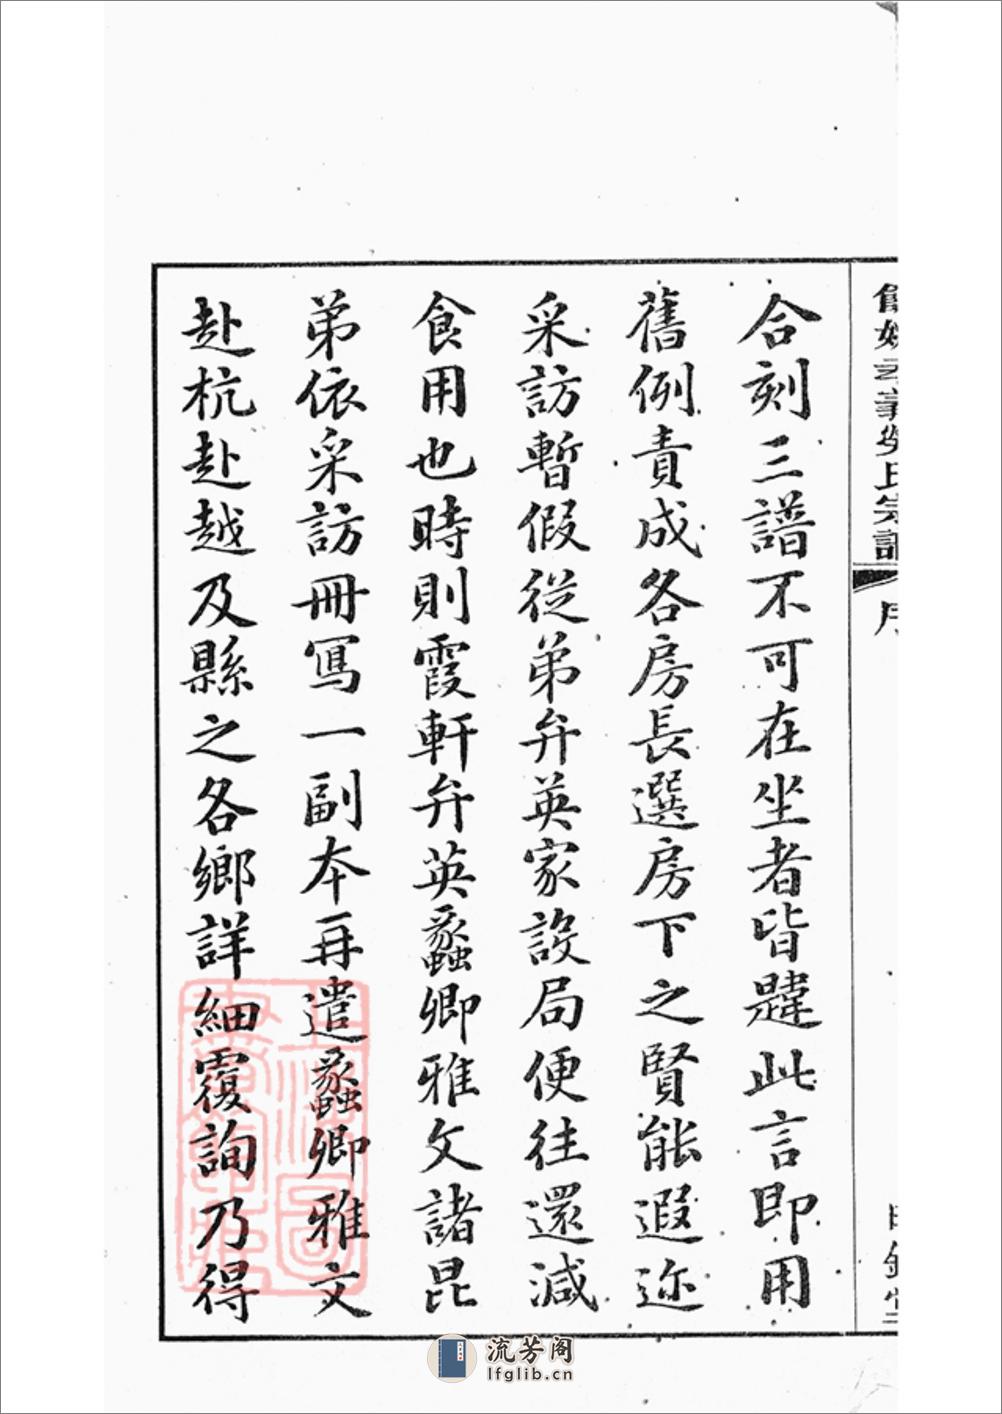 合刻三譜不可在坐者皆韙此言即用
舊例責成各房長選房下之賢能遐迩
采訪暫假從弟弁英家設局便往還減
食用也時則霞軒弁英蠡卿雅文諸昆
弟依采訪冊寫一副本再遣蠡卿雅文
赴杭赴越及縣之各鄉詳細覆詢乃得
流芳阁
lfglib.cn